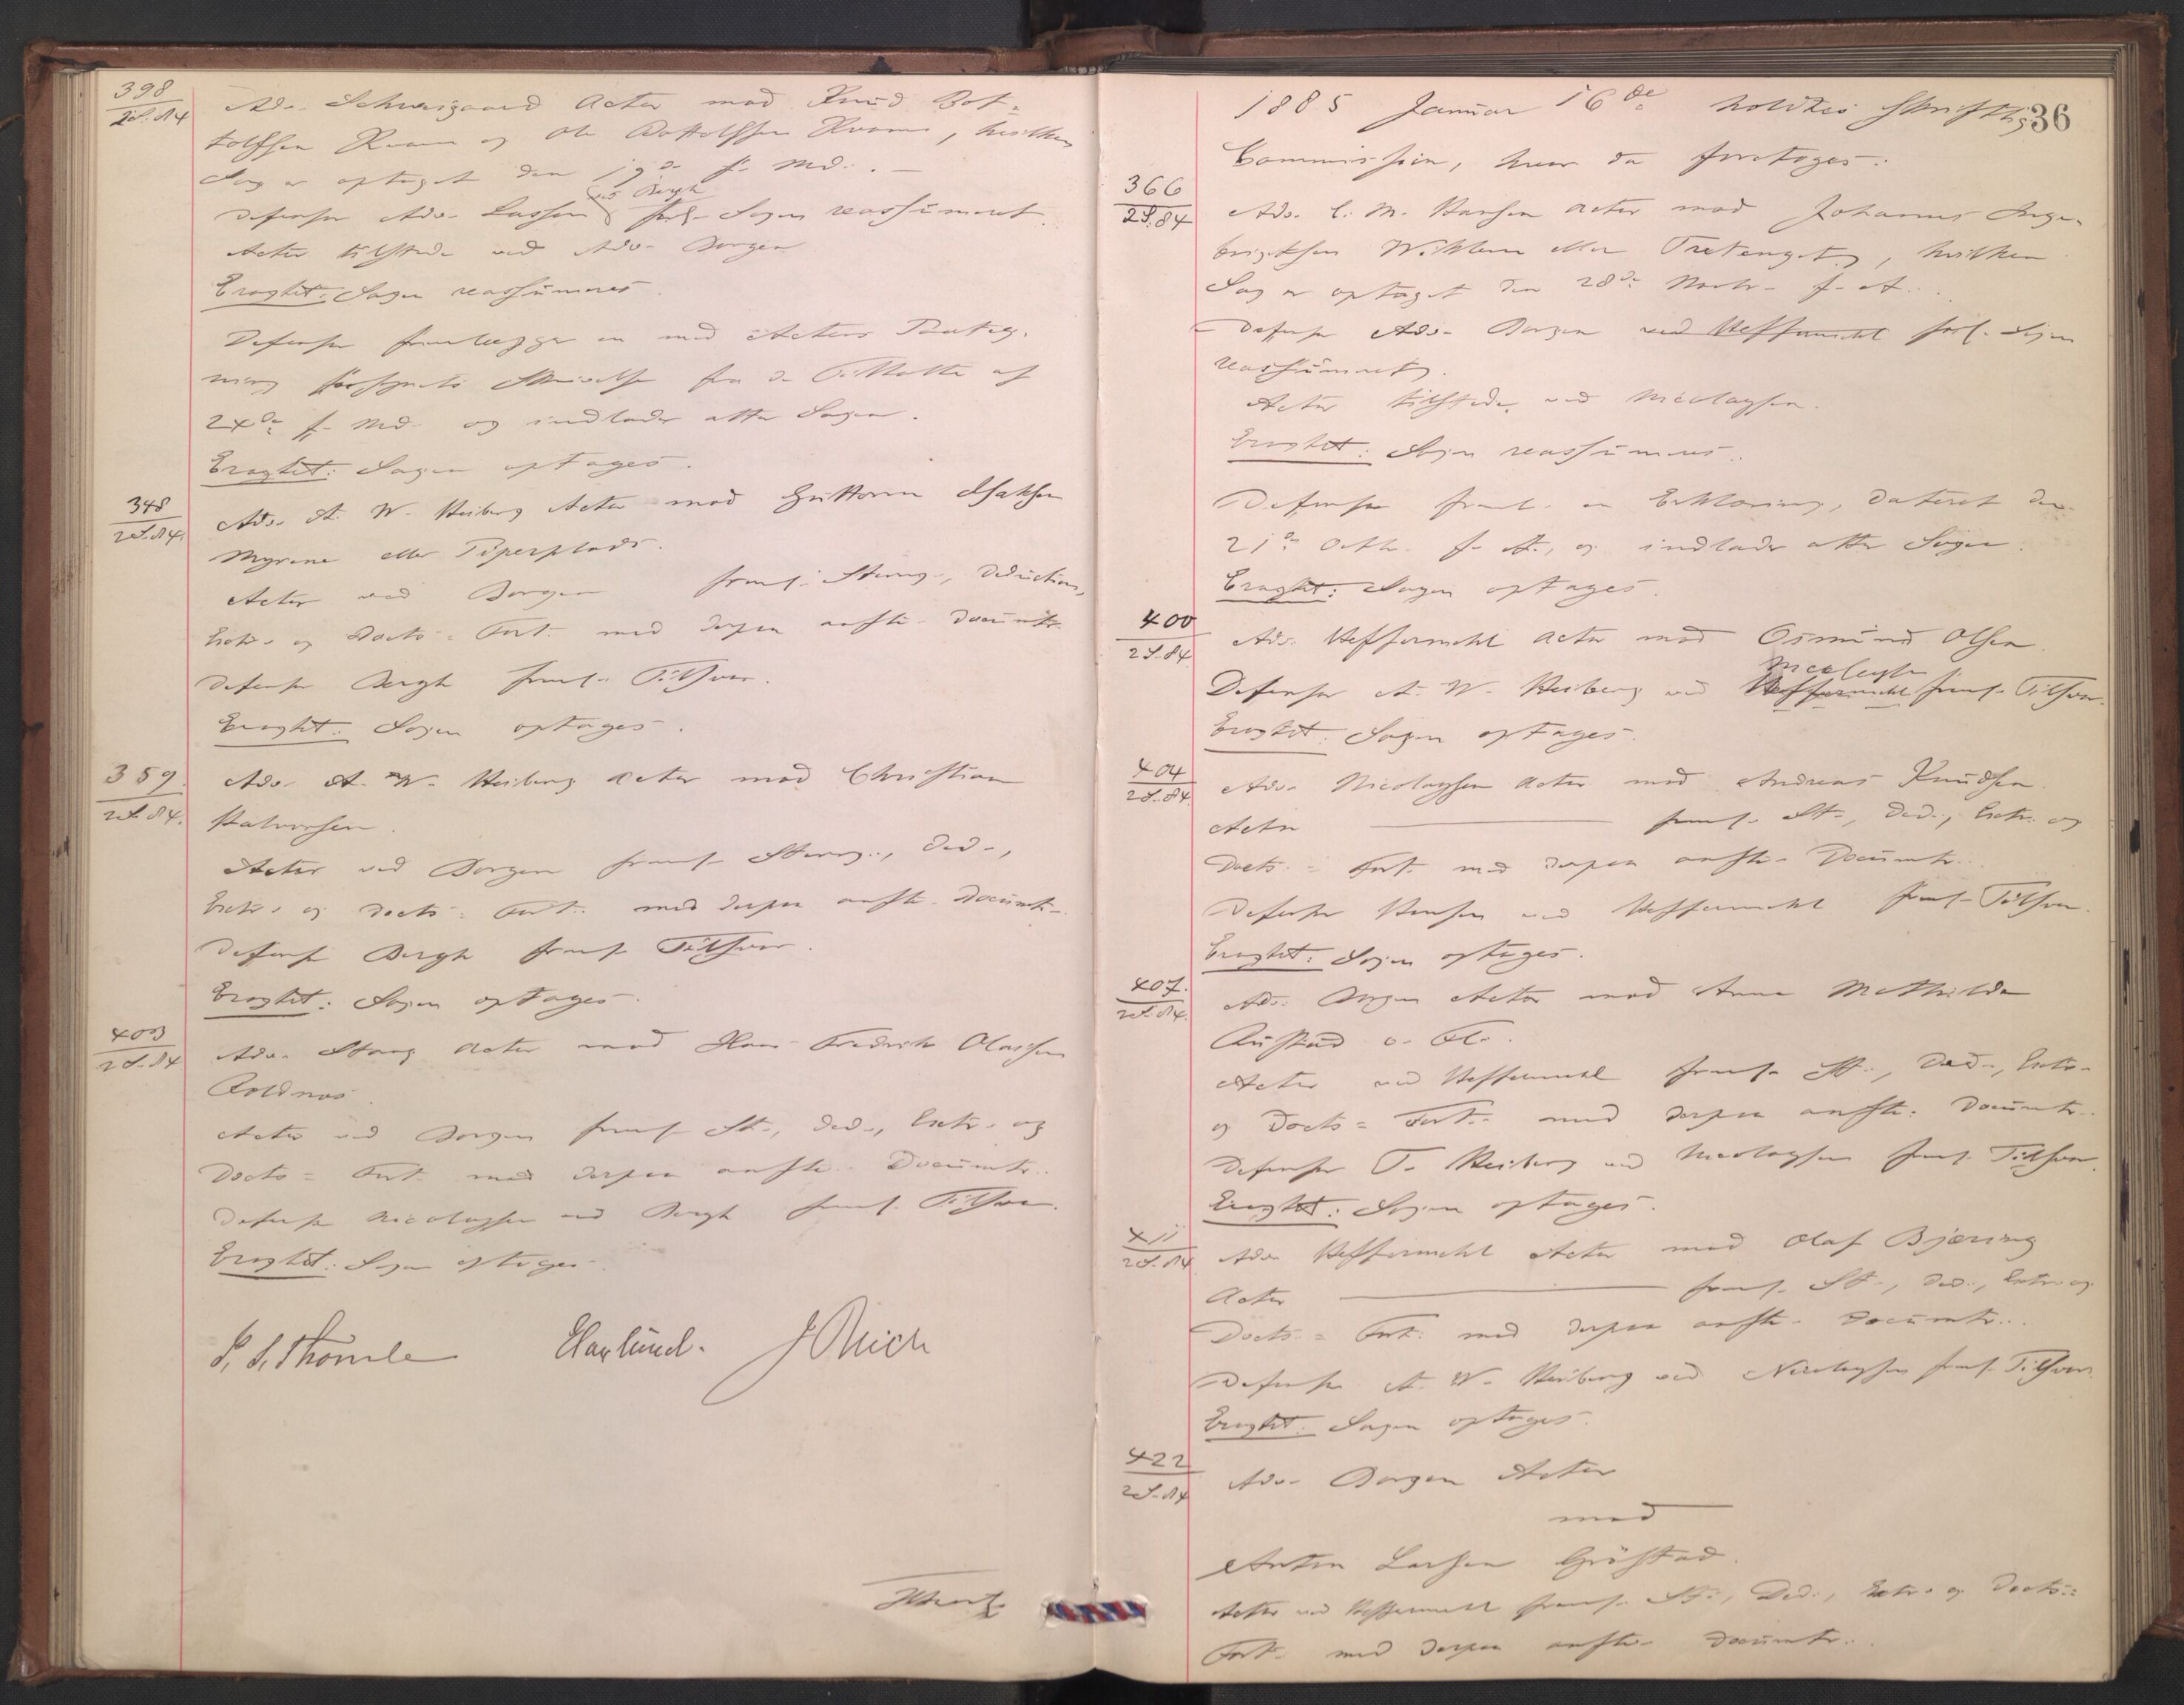 398
2S.84
Adv. Schweigaard Actor mod Knud Bot-
tolfsen Kvam og Ole Bottolfsen Kvam, hvilken
Sag er optaget den 19de f. Md. —
ved Bergh
Defensor Adv. Lassen forl. Sagen reassumeret.
Actor tilstede ved Adv. Borgen
Eragtet: Sagen reassumeres.
Defensor fremlægger en med Actors Paateg-
ning forsynet Skrivelse fra de Tiltalte af
24de f. Md. og indlader atter Sagen.
Eragtet: Sagen optages.
348
2S.84.
Adv. A. W. Heiberg Actor mod Guttorm Isaksen
Myrene eller Piperplads.
Actor ved Borgen freml. Stevng., Deduction,
Extr. og Docts.-Fort. med derpaa anfte. Documtr.
Defensor Bergh freml. Tilsvar.
Eragtet: Sagen optages.
359.
2S.84.
Adv. A. W. Heiberg Actor mod Christian
Halvorsen.
Actor ved Borgen freml. Stevng., Ded.,
Extr. og Docts.-Fort. med derpaa anfte. Documtr.
Defensor Bergh freml. Tilsvar.
Eragtet: Sagen optages.
403
2S.84
Adv. Stang Actor mod Hans Fredrik Olaissen
Roldnes.
Actor ved Borgen freml. St., Ded., Extr. og
Docts.-Fort. med derpaa anfte. Documtr.
Defensor Nicolaysen ved Bergh freml. Tilsvar.
Eragtet: Sagen optages.
Thomle Haslund.
36
1885 Januar 16de holdtes skriftlig
Commission, hvor da foretoges:
366
2S.84
Adv. C. M. Hansen Actor mod Johannes Inge-
brigtsen Wiklem eller Tretenget, hvilken
Sag er optaget den 28de Novbr. f. A.
Defensor Adv. Borgen ved Heffermehl forl. Sagen
reassumeret.
Actor tilstede ved Nicolaysen.
Eragtet: Sagen reassumeres.
Defensor freml. en Erklæring, dateret den
21de Octbr. f. A., og indlader atter Sagen.
Eragtet: Sagen optages.
400
2S.84
Adv. Heffermehl Actor mod Osmund Olsen.
Nicolaysen
Defensor A. W. Heiberg ved Heffermehl freml. Tilsvar.
Eragtet: Sagen optages.
404
2S.84.
Adv. Nicolaysen Actor mod Andreas Knudsen.
Actor — freml. St., Ded., Extr. og
Docts.-Fort. med derpaa anfte. Documtr.
Defensor Hansen ved Heffermehl freml. Tilsvar.
Eragtet: Sagen optages.
407.
2S.84.
Adv. Borgen Actor mod Anne Mathilde
Rustad o. Fl.
Actor ved Heffermehl freml. St., Ded., Extr.
og Docts.-Fort. med derpaa anfte. Documtr.
Defensor T. Heiberg ved Nicolaysen freml. Tilsvar.
Eragtet: Sagen optages.
411
2S.84
Adv. Heffermehl Actor mod Olaf Bjæring
Actor — freml. St., Ded., Extr. og
Docts.-Fort. med derpaa anfte. Documtr.
Defensor A. W. Heiberg ved Nicolaysen freml. Tilsvar.
Eragtet: Sagen optages.
422
2S.84
Adv. Borgen Actor
mod
Anton Larsen Grøstad.
Actor ved Heffermehl freml. St., Ded., Extr. og Docts.-
Fort. med derpaa anfte. Documtr.